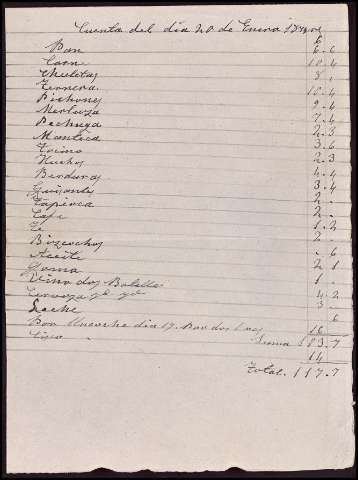 Cuenta del dia 20 de Enero
Pan 6.6
Carne 10.4
Chuletas 8.
Ternera 10.4
Pichones 9.4
Merluza 7.4
Pechuga 2.3
Manteca 3.6
Tocino 2.3
Huebos 4.4
Berduras 3.4
Guisante 2.
Tapioca 2.
Cafe 2.
Te 1.2
Bizcochos 2.
Aceite .6
Goma 2 1
Vino dos Botellas 1.
Cerveza 4.2
Leche 3
Pan dia 17 6
16
Suma 103.7
14
Total. 117.7